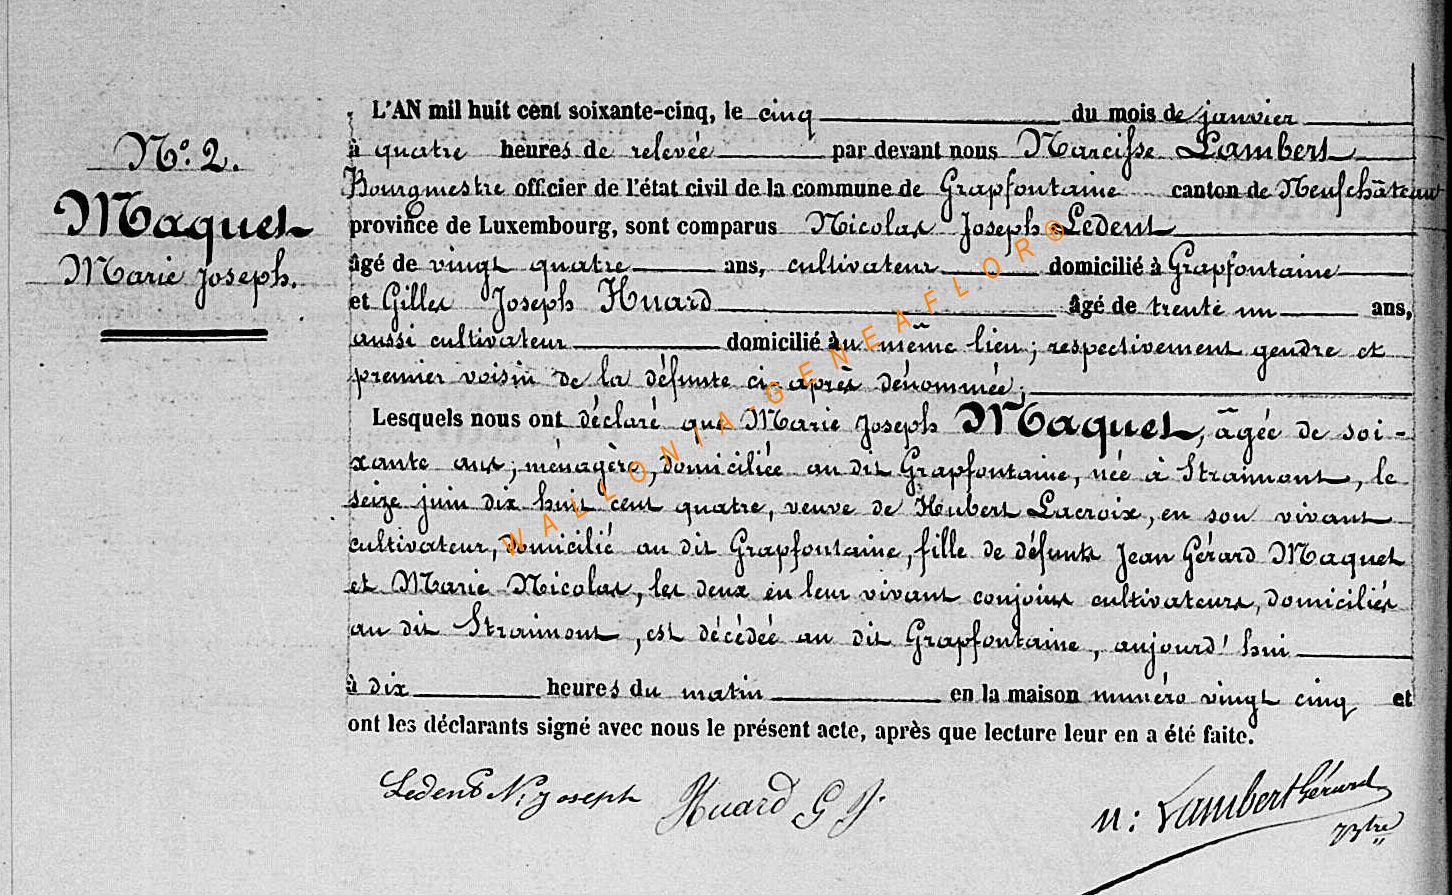 N°. 2.
Maquet
Marie Joseph.
L'AN mil huit cent soixante-cinq, le cinq du mois de janvier
à quatre heures de relevée par devant nous Narcisse Lambert
Bourgmestre officier de l'état civil de la commune de Grapfontaine canton de Neufchâteau
province de Luxembourg, sont comparus Nicolas Joseph Ledent
âgé de vingt quatre ans, cultivateur domicilié à Grapfontaine
et Gilles Joseph Huard âgé de trente un ans,
aussi cultivateur domicilié au même lieu; respectivement gendre et
premier voisin de la défunte ci-après dénommée;
Lesquels nous ont déclaré que Marie Joseph Maquet, âgée de soi-
xante ans, ménagère, domiciliée au dit Grapfontaine, née à Straimont, le
seize juin dix huit cent quatre, veuve de Hubert Lacroix, en son vivant
cultivateur, domicilié au dit Grapfontaine, fille de défunts Jean Gérard Maquet
et Marie Nicolas, les deux en leur vivant conjoins cultivateurs, domiciliés
au dit Straimont, est décédée au dit Grapfontaine, aujourd'hui
à dix heures du matin en la maison numéro vingt cinq et
ont les déclarants signé avec nous le présent acte, après que lecture leur en a été faite.
Ledent N. Joseph Huard G J. N: Lambert Gérard
Bstre
WALLONIA-GENEAFLOR®